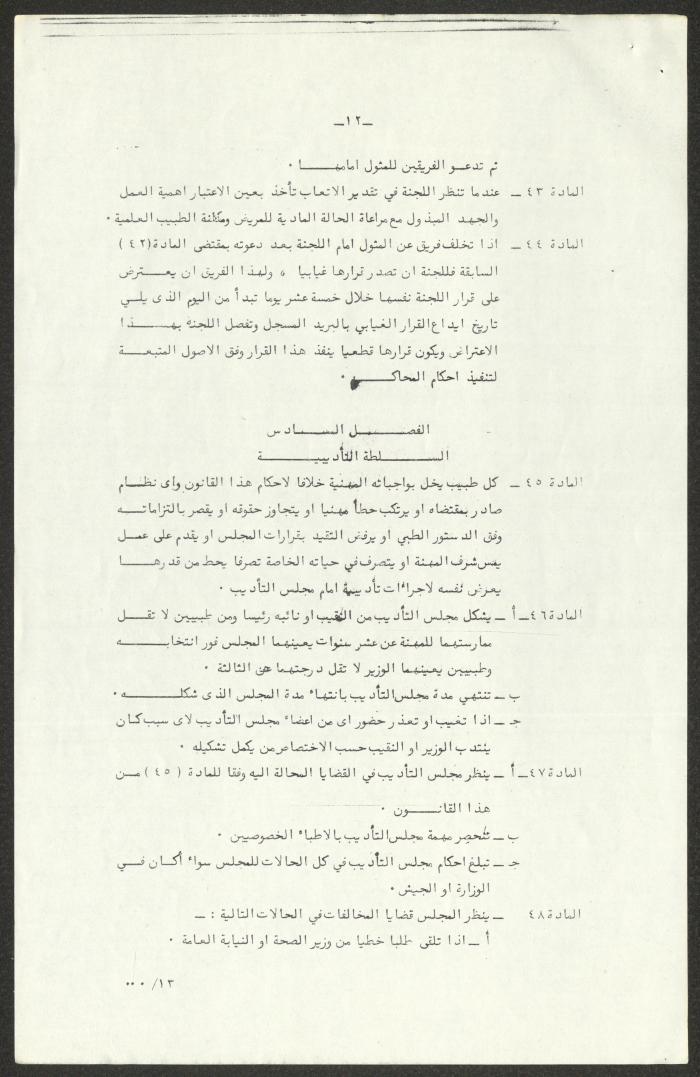 -١٢-
ثم تدعو الفريقين للمثول امامهــا ٠
المادة ٤٣ ـ عندما تنظر اللجنة في تقدير الاتعاب تأخذ بعين الاعتبار اهمية العمل
والجهد المبذول مع مراعاة الحالة المادية للمريض ومكانة الطبيب العلمية ٠
المادة ٤٤ ـ اذا تخلف فريق عن المثول امام اللجنة بعد دعوته بمقتضى المادة (٤٢)
السابقة فللجنة ان تصدر قرارها غيابيا ، ولهذا الفريق ان يعــترض
على قرار اللجنة نفسها خلال خمسة عشر يوما تبدأ من اليوم الذى يلـي
تاريخ ايداع القرار الغيابي بالبريد المسجل وتفصل اللجنة بهـــذا
الاعتراض ويكون قرارها قطعيا ينفذ هذا القرار وفق الاصول المتبعــة
لتنفيذ احكام المحاكـــم ٠
الفصــل الســادس
الســلطة التأديبيــة
المادة ٤٥ ـ كل طبيب يخل بواجباته المهنية خلافا لاحكام هذا القانون واى نظــام
صادر بمقتضاه او يرتكب خطأ مهنيا او يتجاوز حقوقه او يقصر بالتزاماتــه
وفق الدستور الطبي او يرفض التقيد بقرارات المجلس او يقدم على عمــل
يمس شرف المهنة او يتصرف في حياته الخاصة تصرفا يحط من قدرهــا
يعرض نفسه لاجراءات تأديبية امام مجلس التأديب ٠
المادة ٤٦ـ أ ـ يشكل مجلس التأديب من النقيب او نائبه رئيسا ومن طبيبين لا تقــل
ممارستهما للمهنة عن عشر سنوات يعينهما المجلس فور انتخابــه
وطبيبين يعينهما الوزير لا تقل درجتهما عن الثالثة ٠
ب ـ تنتهي مدة مجلس التأديب بانتهاء مدة المجلس الذى شكلــه ٠
جـ ـ اذا تغيب او تعذر حضور اى من اعضاء مجلس التأديب لاى سبب كـان
ينتدب الوزير او النقيب حسب الاختصاص من يكمل تشكيله ٠
المادة ٤٧ـ أ ـ ينظر مجلس التأديب في القضايا المحالة اليه وفقا للمادة (٤٥) مــن
هذا القانــون ٠
ب ـ تنحصر مهمة مجلس التأديب بالاطباء الخصوصيين ٠
جـ ـ تبلغ احكام مجلس التأديب في كل الحالات للمجلس سواء أكـان فــي
الوزارة او الجيش ٠
المادة ٤٨ ـ ينظر المجلس قضايا المخالفات في الحالات التالية : ـ
أ ـ اذا تلقى طلبا خطيا من وزير الصحة او النيابة العامة ٠
١٣/ ٠٠٠